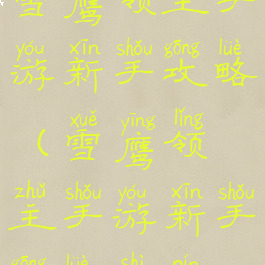 雪鹰领主手
yóu xīn shǒu gōng lüè
游新手攻略
xuě yīng lǐng
（雪鹰领
zhǔ shǒu yóu xīn shǒu
主手游新手
gōng lüè shì pín